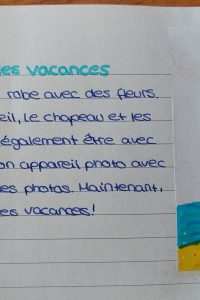 les vacances
robe avec des fleurs.
le chapeau et les
également être avec
appareil photo avec
photos. Maintenant,
vacances!